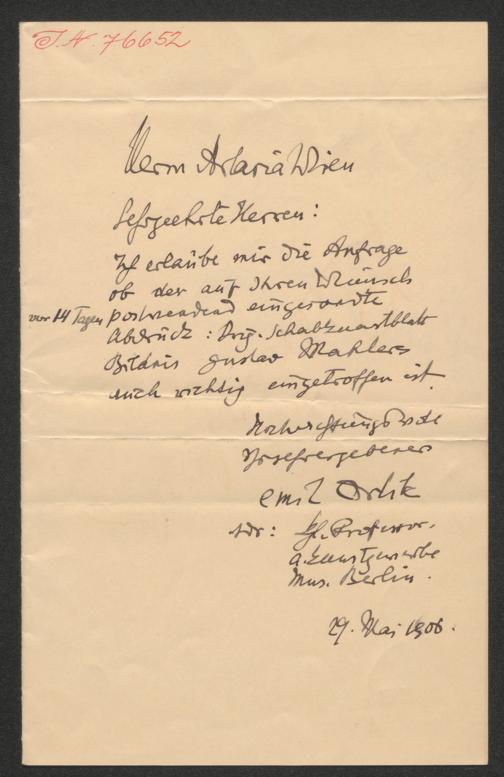 I.N. 76652
Herrn Artaria Wien
Sehrgeehrte Herren:
Ich erlaube mir die Anfrage
ob der auf Ihren Wunsch
vor 14 Tagen postwendend eingesandte
Abdruck: Orig. Schabkunstblatt
Bildnis Gustav Mahlers
auch richtig eingetroffen ist.
Hochachtungsvoll
Ihr sehr ergebener
Emil Orlik
Adr: Kgl. Professor.
a. Kunstgewerbe
Mus. Berlin.
29. Mai 1906.